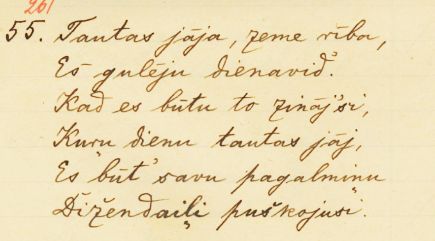 261
55. Tautas jāja, zeme rība,
Es gulēju dienavid'.
Kad es būtu to zināj'si,
Kuŗu dienu tautas jāj,
Es būt' savu pagalmiņu
Dīžeņdaiļi puškojusi.